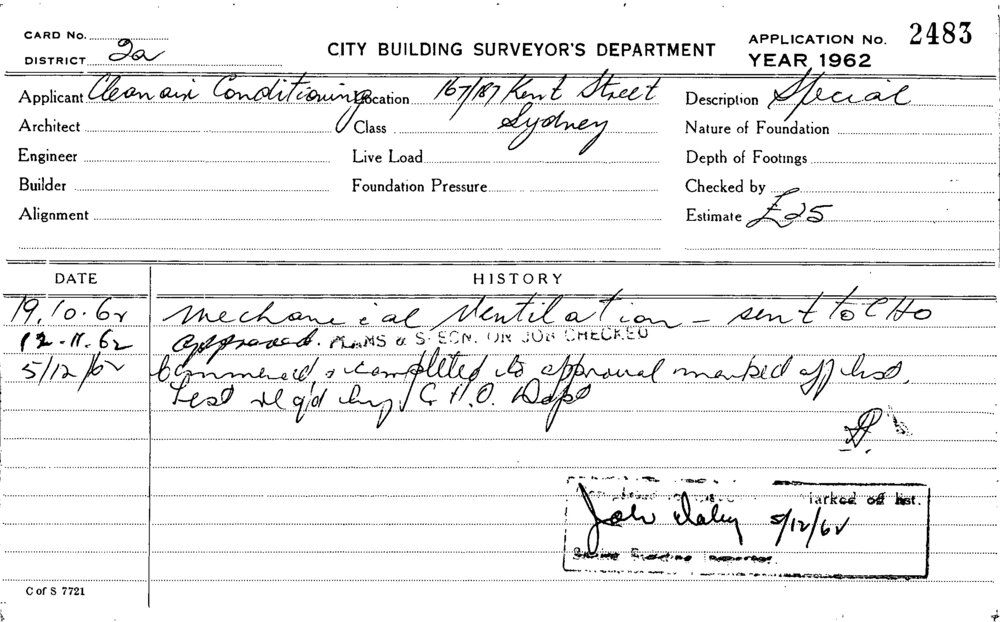 CARD No.
DISTRICT 2a
CITY BUILDING SURVEYOR'S DEPARTMENT
APPLICATION No. 2483
YEAR 1962
Applicant Cleanair Conditioning
Location 167/187 Kent Street
Sydney
Description Special
Architect
Class
Nature of Foundation
Engineer
Live Load
Depth of Footings
Builder
Foundation Pressure
Checked by
Alignment
Estimate £25
DATE HISTORY
19.10.62 Mechanical Ventilation - sent to CHO
12-11-62 approved. PLANS & S ECN. ON JOB CHECKED
5/12/62 Commenced & completed to approval marked off list.
Test req'd by C.H.O. Dept
marked off list.
John 5/12/62
Building Inspector.
C of S 7721